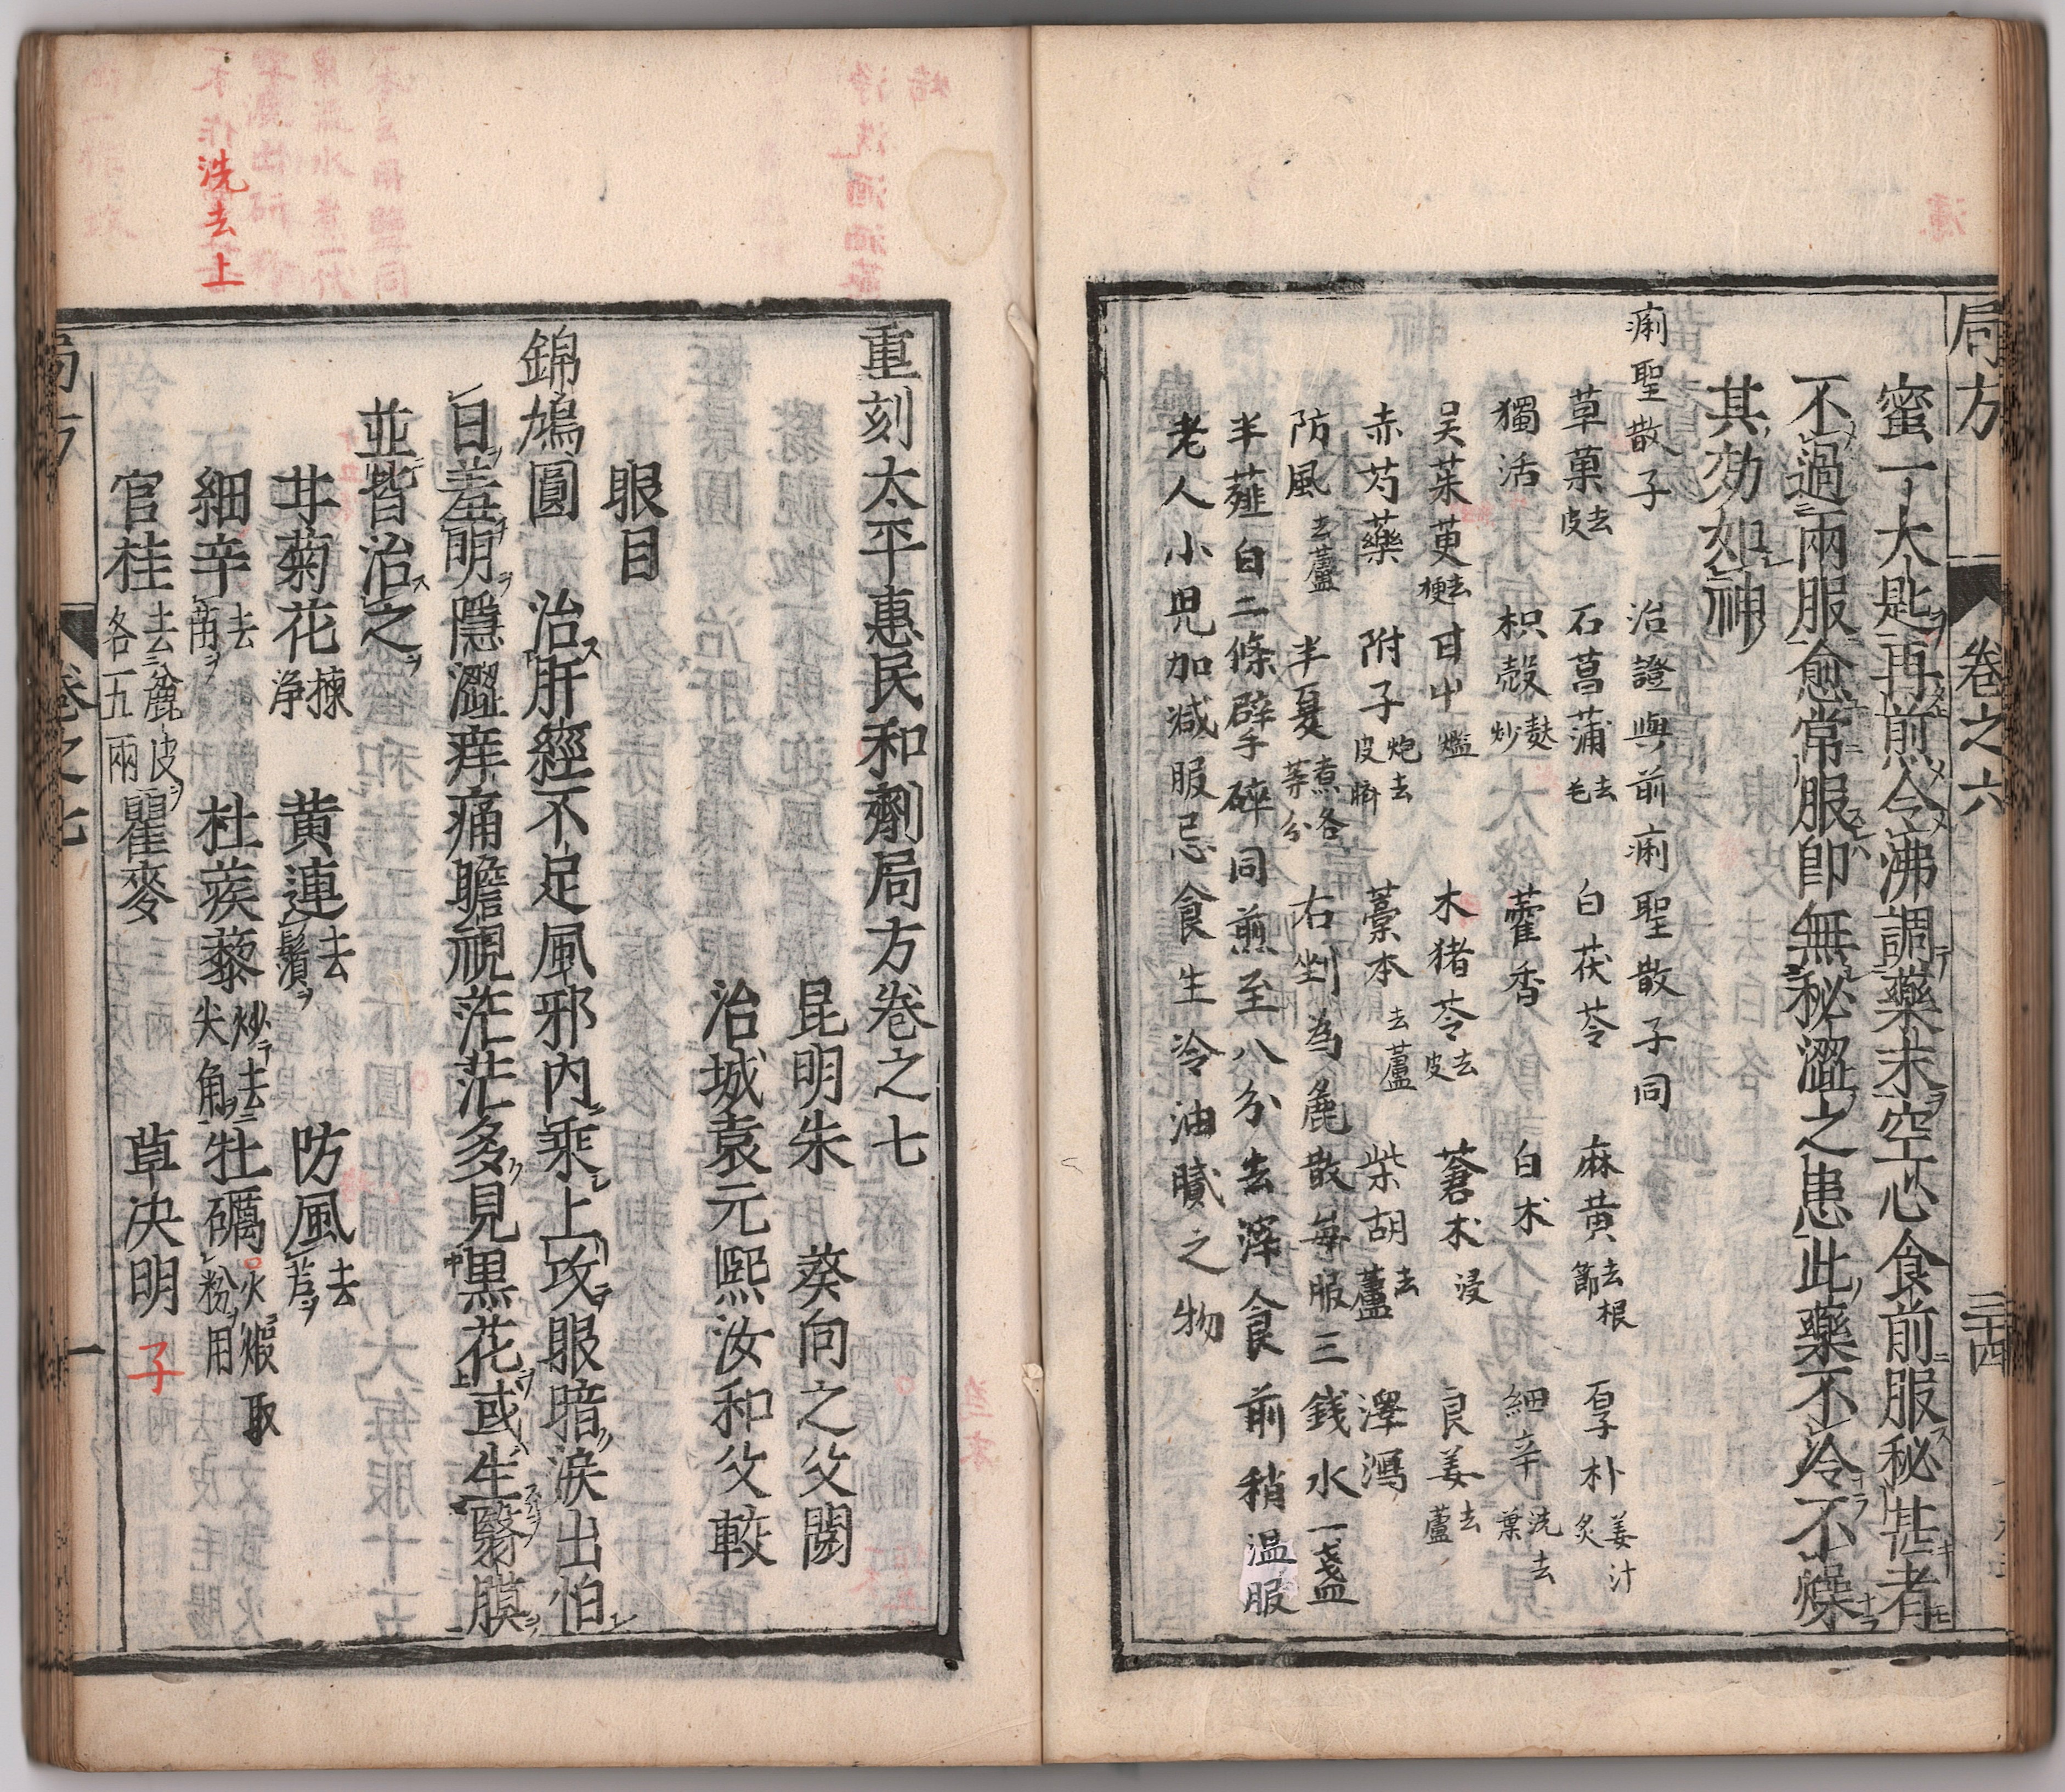 局方 卷之六 三十四
蜜一大匙再煎令沸調藥末空心食前服秘甚者
不過兩服愈常服即無秘澀之患此藥不冷不燥
其効如神
痢聖散子 治證與前痢聖散子同
草菓去皮 石菖蒲去毛 白茯苓 麻黄去根節 厚朴姜汁炙
獨活 枳殻麩炒 藿香 白朮 細辛洗去葉
吴茱萸去梗 甘中爁 木猪苓去皮 蒼朮浸 良姜去蘆
赤芍藥 附子炮去皮臍 藁本去蘆 柴胡去蘆 澤瀉
防風去蘆 半夏煮各等分 右剉為麁散每服三錢水一盞
半薤白二條擘手碎同煎至八分去滓食前稍温服
老人小児加减服忌食生冷油膩之物
重刻太平惠民和劑局方卷之七
昆明朱 葵向之父閲
治城袁元熙汝和父較
眼目
錦鳩圓 治肝經不足風邪内乘上攻眼暗淚出怕
日羞明隱澀痒痛瞻視茫茫多見黒花或生翳膜
並皆治之
甘菊花揀净 黄連去鬚 防風去蘆
細辛去苗 杜蒺藜炒去尖角 牡礪火煆取粉用
官桂去麄皮各五兩 瞿麥 草决明子
洗去上
局方 卷之七 一